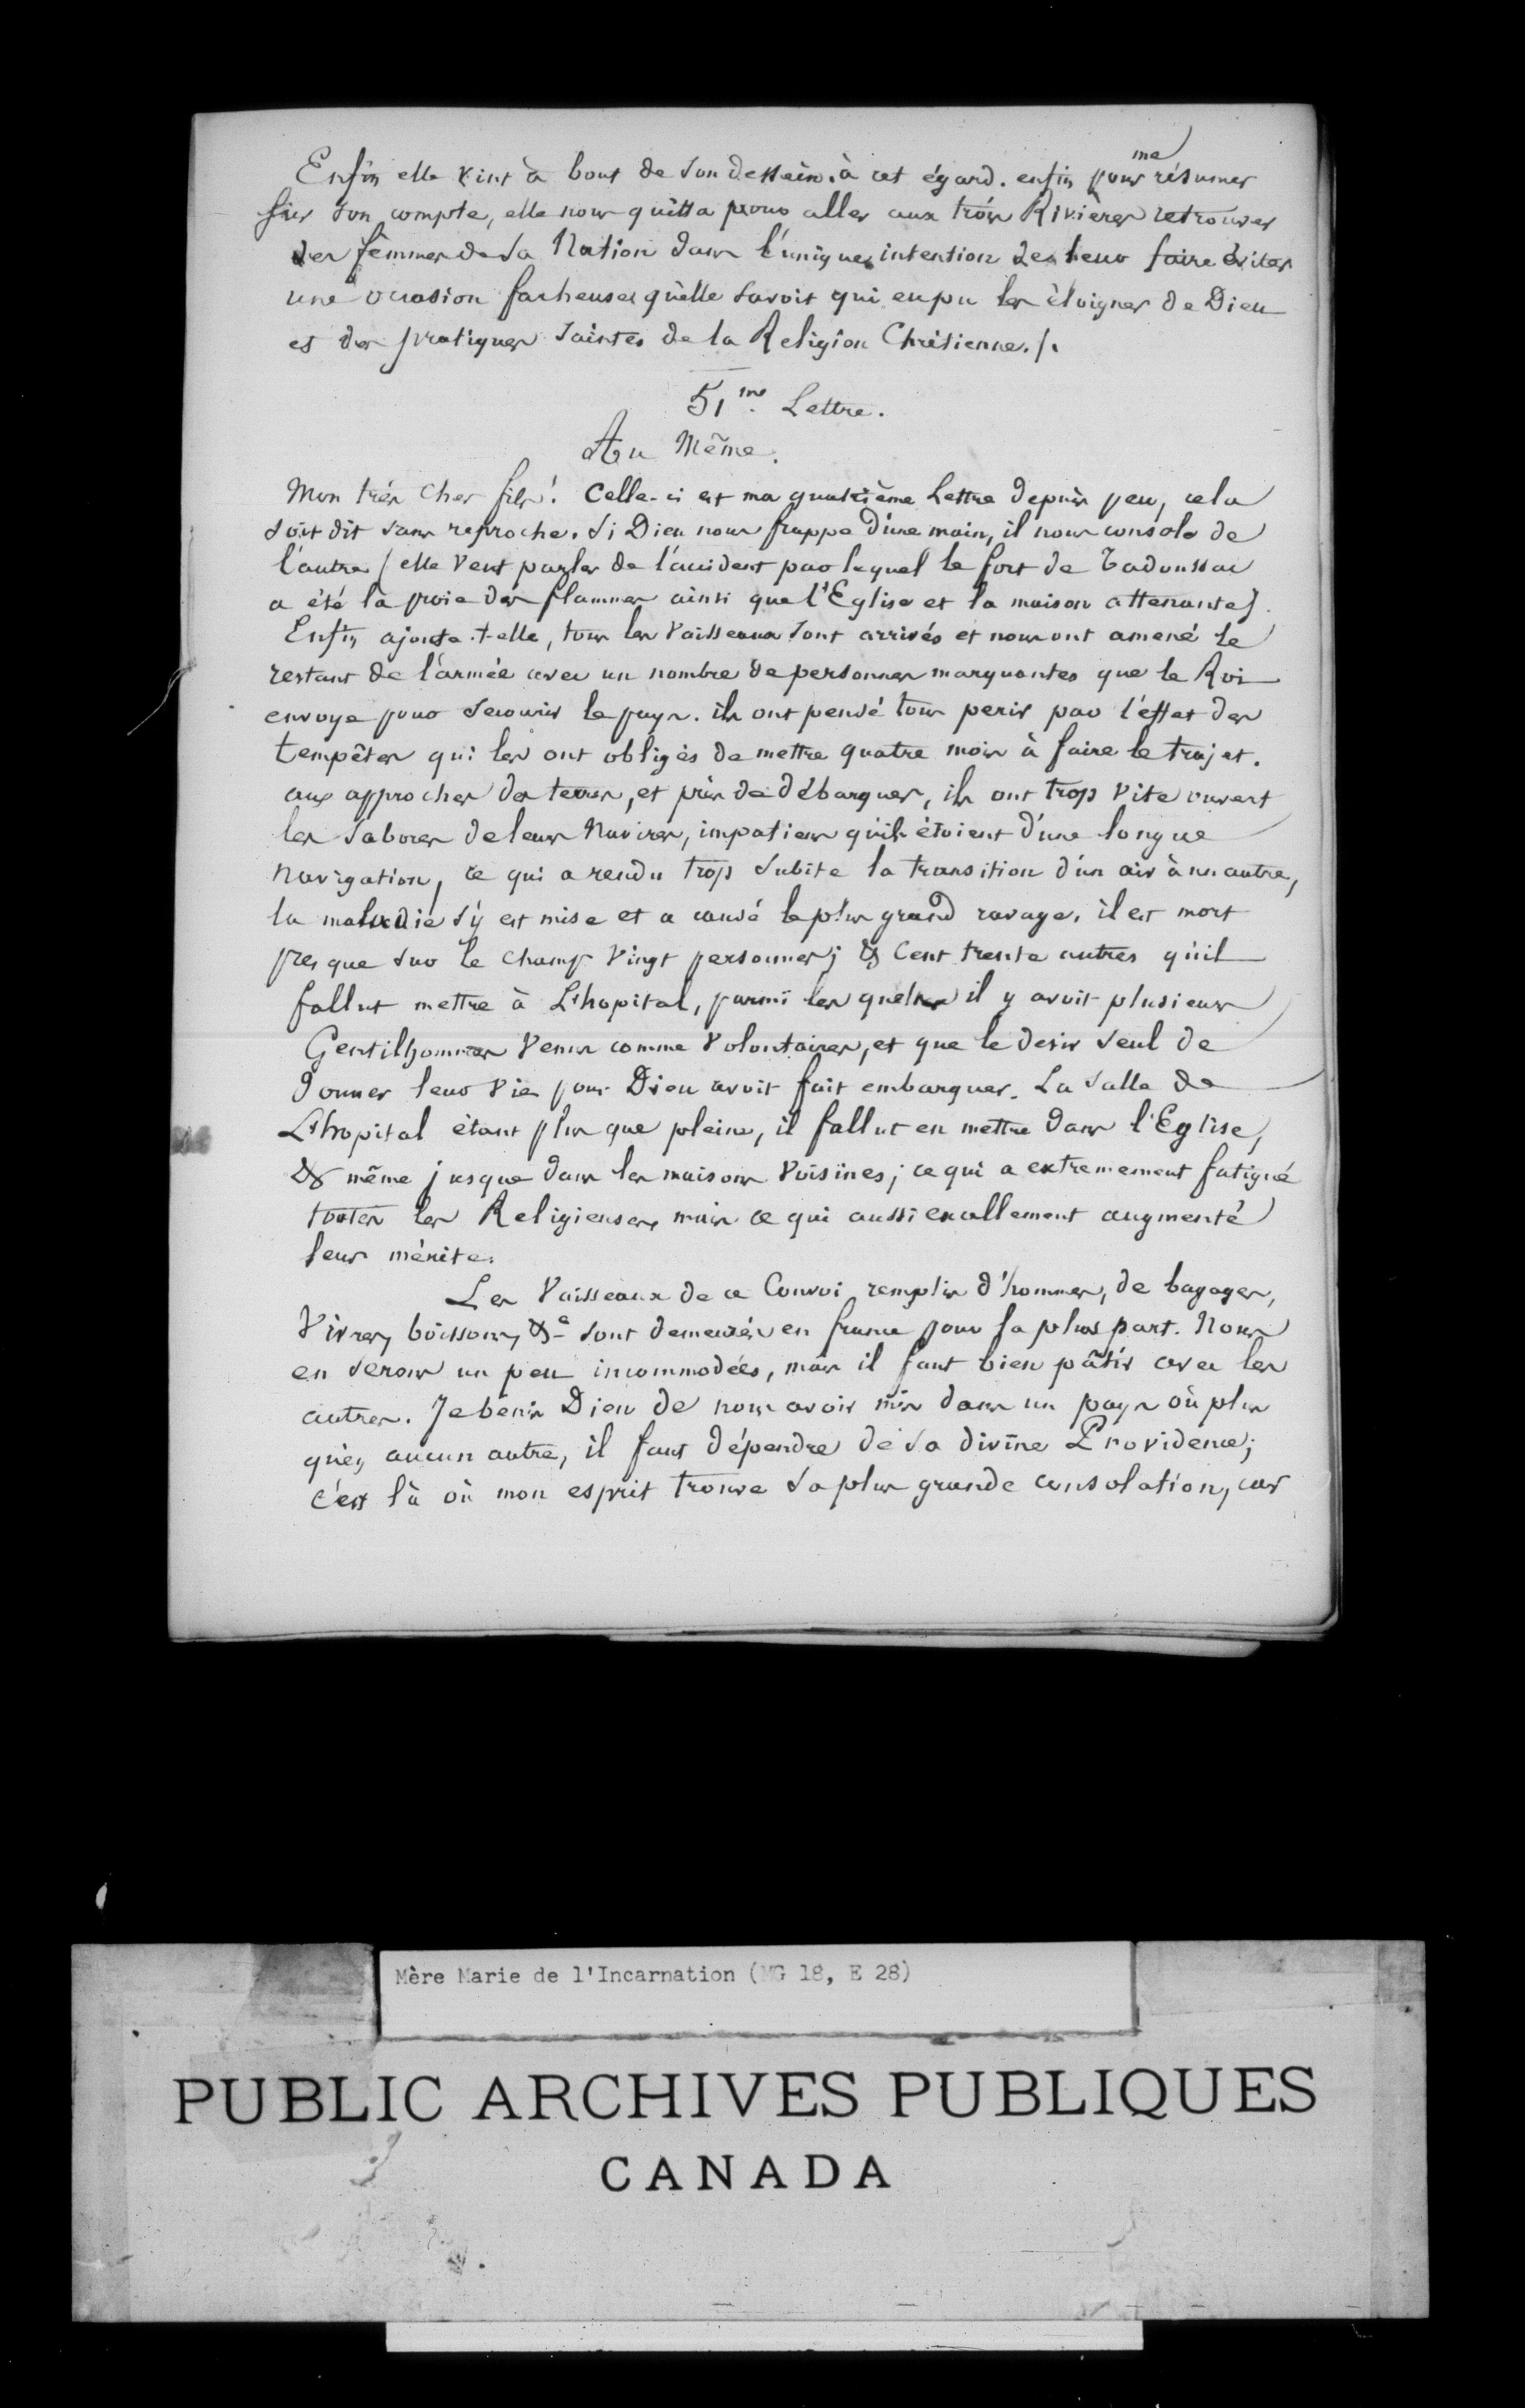 Enfin elle vint à bout de son dessein à cet égard. enfin pour me résumer
sur son compte, elle nous quitta pour aller aux trois Rivières retrouver
des femmes de sa Nation dans l'unique intention de leur faire éviter
une occasion facheuse qu'elle savoit qui eu pu les éloigner de Dieu
et des pratiques saintes de la Religion Chrétienne./.
51me. Lettre.
Au Même.
Mon très cher fils! Celle-ci est ma quatrième Lettre depuis peu, cela
soit dit sans reproche. Si Dieu nous frappe d'une main, il nous console de
l'autre (elle veut parler de l'accident par lequel le fort de Tadoussac
a été la proie des flammes ainsi que l'Eglise et la maison attenante).
Enfin ajoute-t-elle, tous les Vaisseaux sont arrivés et nous ont amené le
restant de l'armée avec un nombre de personnes marquantes que le Roi
envoye pour secourir le pays. ils ont pensé tous perir par l'effet des
tempêtes qui les ont obligés de mettre quatre mois à faire le trajet.
aux approches des terres, et près de débarquer, ils ont trop vite ouvert
les sabores de leurs Navires, impatiens qu'ils étoient d'une longue
navigation, ce qui a rendu trop subite la transition d'un air à un autre,
la maladie s'y est mise et a causé le plus grand ravage. il est mort
presque sur le champ Vingt personnes; & Cent trente autres qu'il
fallut mettre à L'hopital, parmi les quelles il y avoit plusieurs
Gentilhommes Venus comme Volontaires, et que le desir seul de
donner leur vie pour Dieu avoit fait embarquer. La salle de
L'hopital étant plus que pleine, il fallut en mettre dans l'Eglise,
& même jusque dans les maisons Voisines; ce qui a extremement fatigué
toutes les Religieuses, mais ce qui aussi excellement augmenté
leur mérite.
Les Vaisseaux de ce Convoi remplis d'hommes, de bagages,
Vivres, boissons, &c sont demeurés en france pour la plus part. Nous
en serons un peu incommodées, mais il faut bien pâtir avec les
autres. Je bénis Dieu de nous avoir mis dans un pays où plus
qu'en aucun autre, il faut dépendre de sa divine Providence;
c'est là où mon esprit trouve sa plus grande consolation, car
Mère Marie de l'Incarnation (MG 18, E 28)
PUBLIC ARCHIVES PUBLIQUES
CANADA